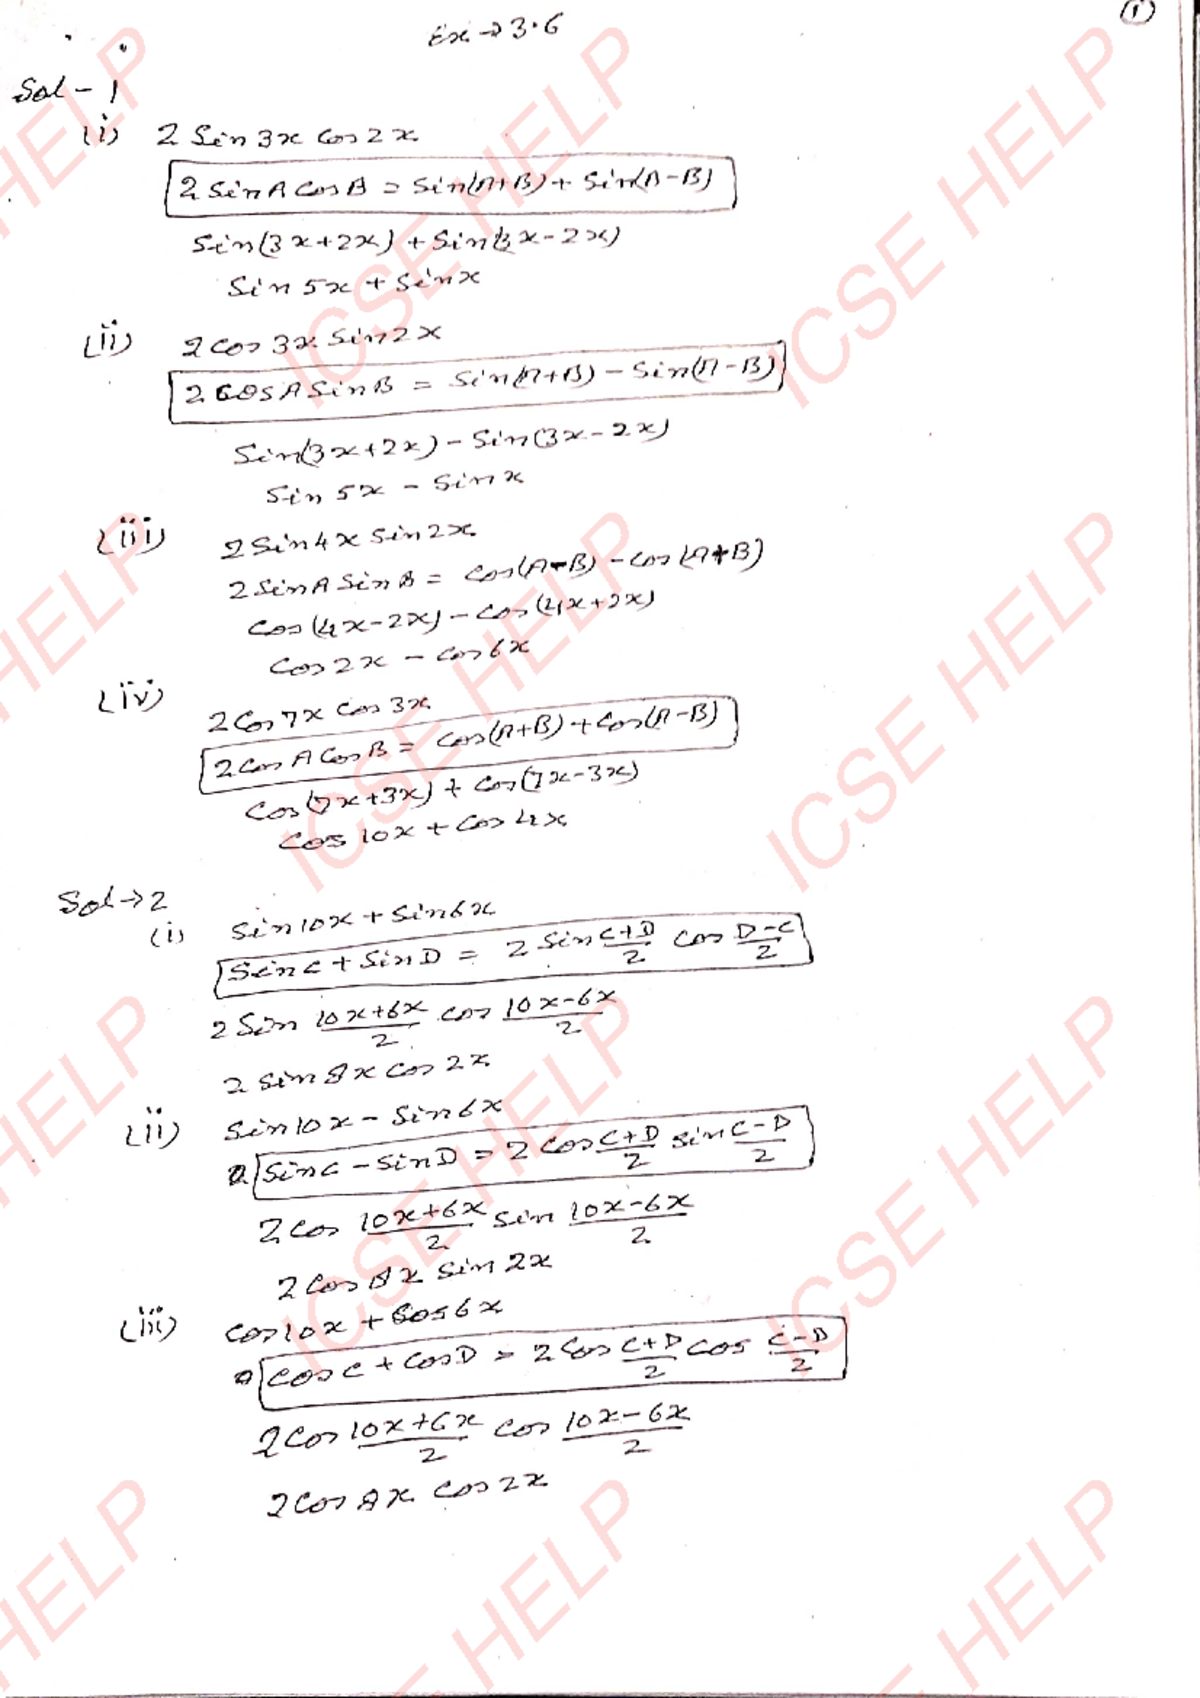 ①
Ex → 3.6
Sol - 1
(i) 2 Sin 3x Cos 2x
2 Sin A Cos B = Sin(A+B) + Sin(A-B)
Sin(3x+2x) + Sin(3x-2x)
Sin 5x + Sin x
(ii) 2 Cos 3x Sin 2x
2 Cos A Sin B = Sin(A+B) - Sin(A-B)
Sin(3x+2x) - Sin(3x-2x)
Sin 5x - Sin x
(iii) 2 Sin 4x Sin 2x
2 Sin A Sin B = Cos(A-B) - Cos(A+B)
Cos(4x-2x) - Cos(4x+2x)
Cos 2x - Cos 6x
(iv) 2 Cos 7x Cos 3x
2 Cos A Cos B = Cos(A+B) + Cos(A-B)
Cos(7x+3x) + Cos(7x-3x)
Cos 10x + Cos 4x
Sol → 2
(i) Sin 10x + Sin 6x
Sin C + Sin D = 2 Sin C+D/2 Cos D-C/2
2 Sin 10x+6x/2 Cos 10x-6x/2
2 Sin 8x Cos 2x
(ii) Sin 10x - Sin 6x
Sin C - Sin D = 2 Cos C+D/2 Sin C-D/2
2 Cos 10x+6x/2 Sin 10x-6x/2
2 Cos 8x Sin 2x
(iii) Cos 10x + Cos 6x
Cos C + Cos D = 2 Cos C+D/2 Cos C-D/2
2 Cos 10x+6x/2 Cos 10x-6x/2
2 Cos 8x Cos 2x
ICSE HELP